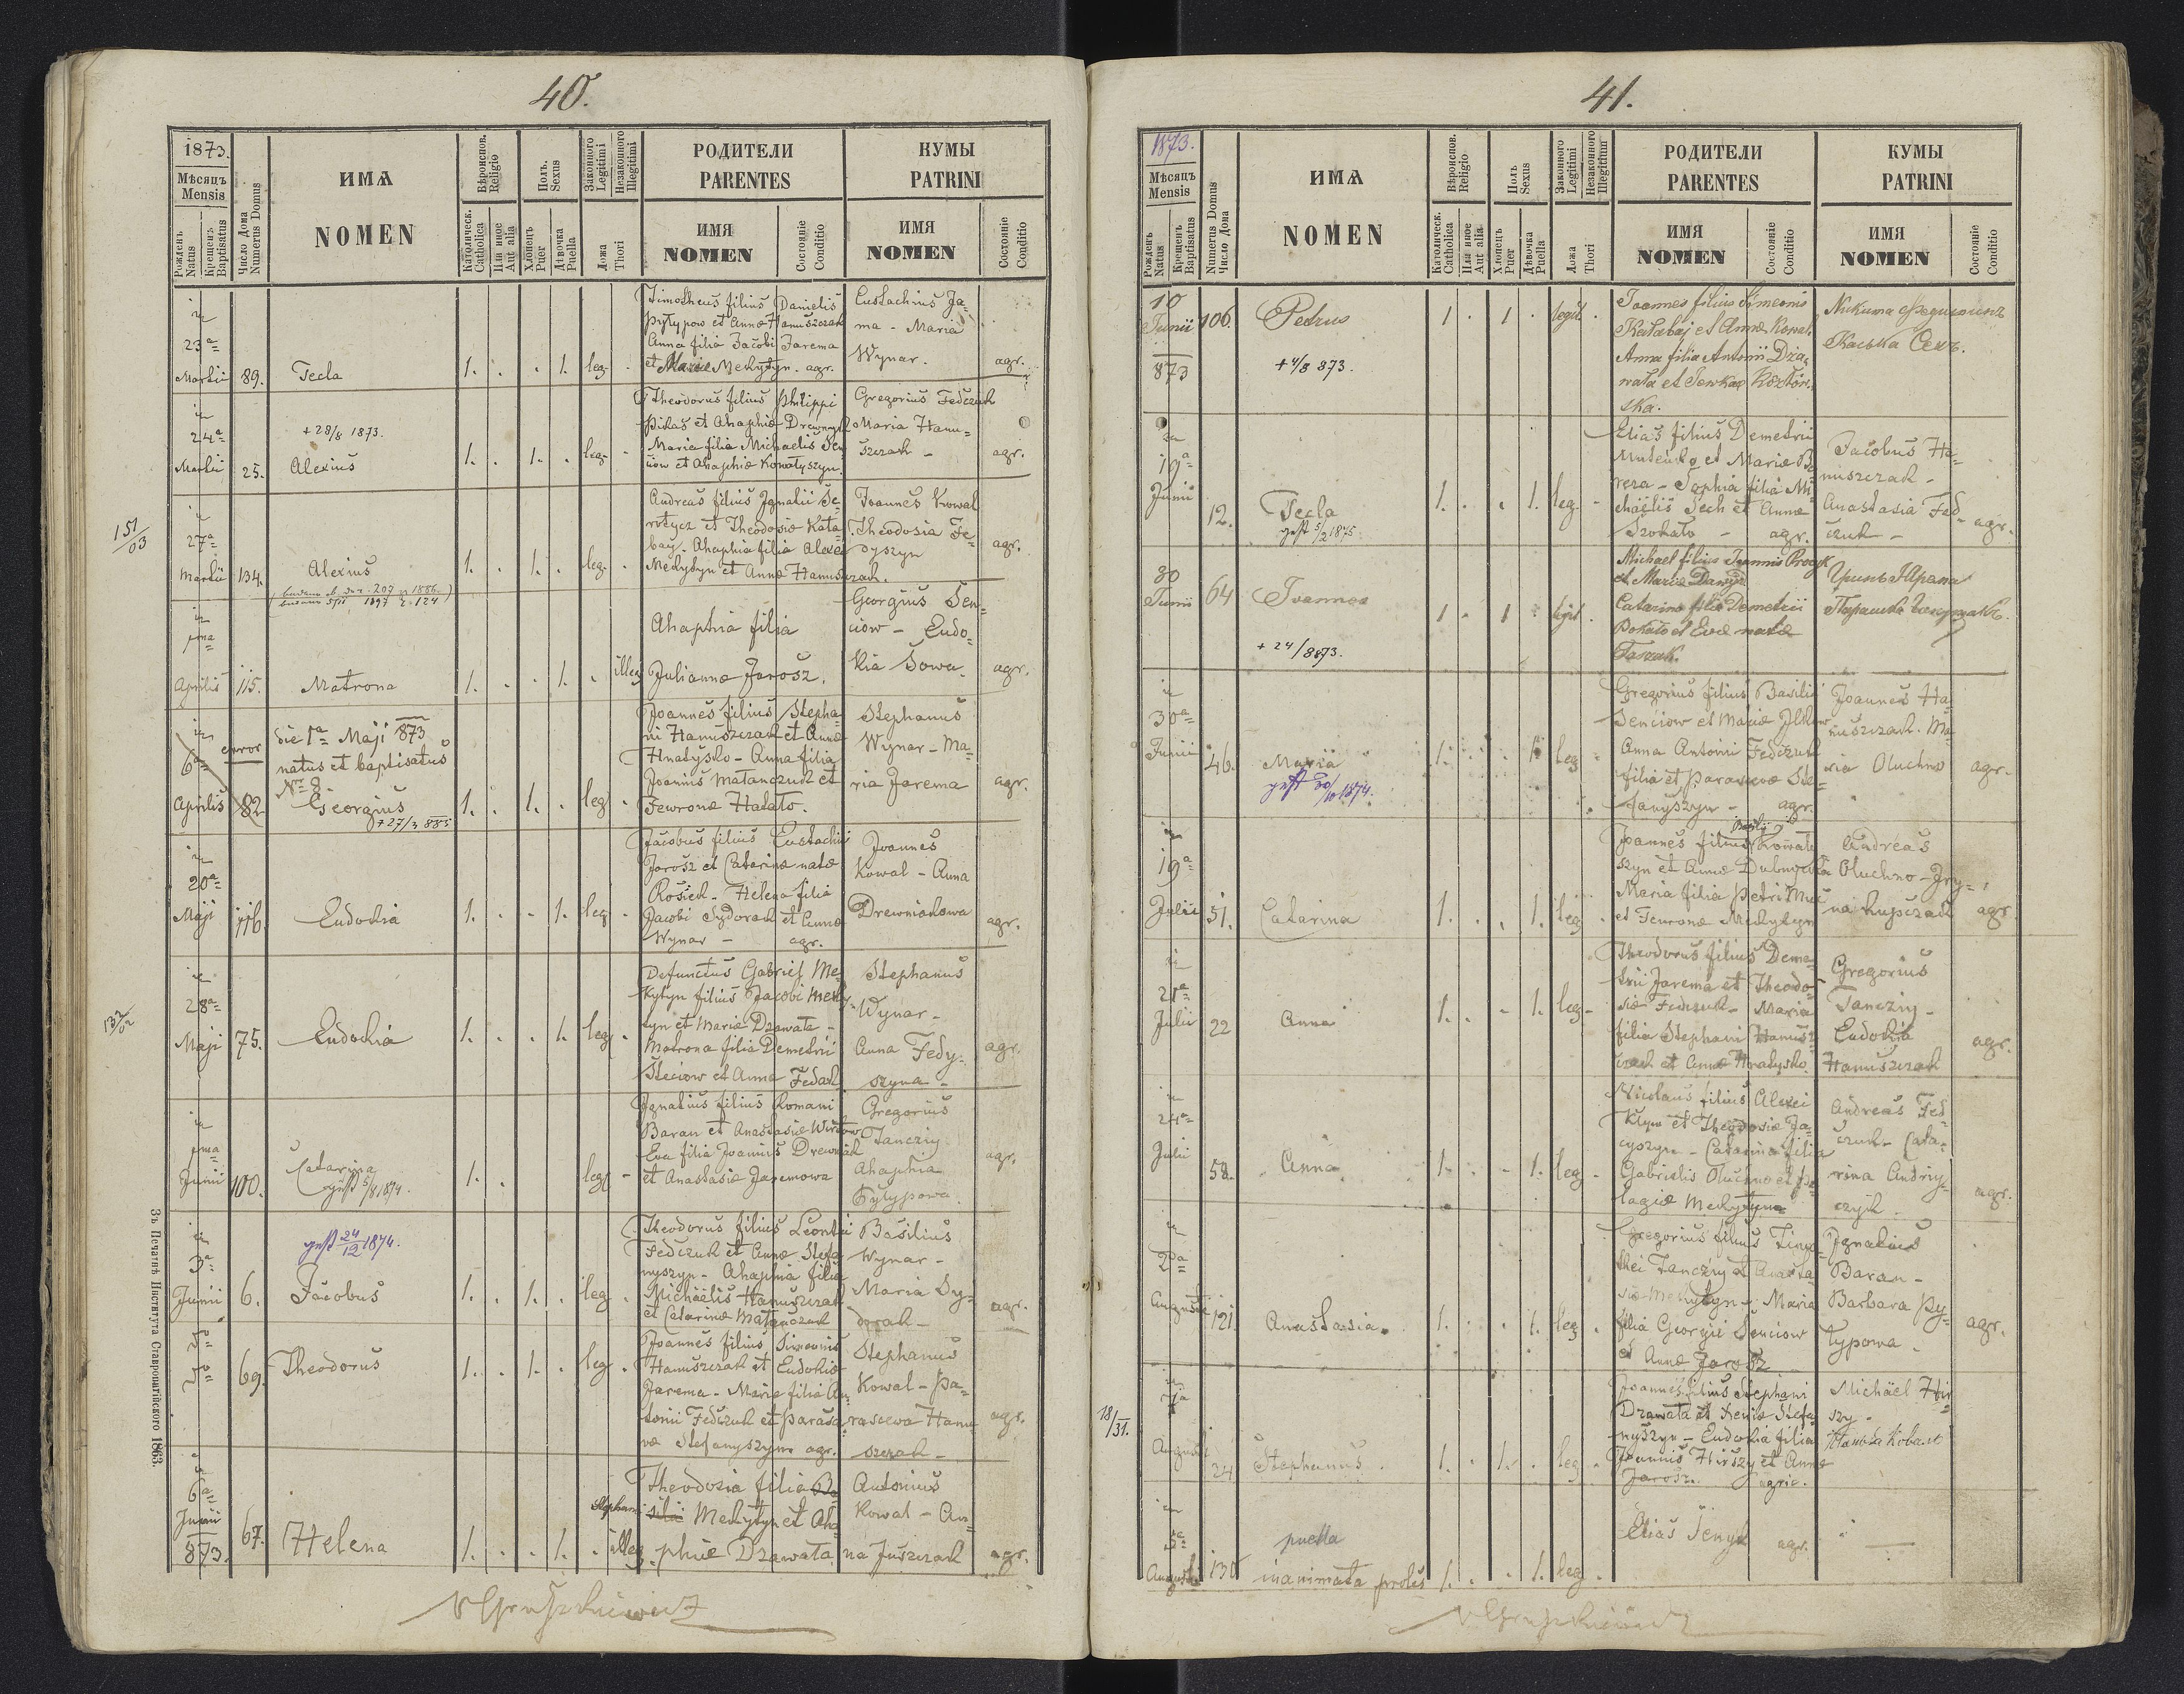 40.
1873.
Мѣсяцъ
Mensis
Рожденъ
Natus
Крещенъ
Baptisatus
Число Дома
Numerus Domus
ИМѦ
NOMEN
Вѣроиспов.
Religio
Католическ.
Catholica
Или иное
Aut alia
Полъ.
Sexus
Хлопецъ
Puer
Дѣвочка
Puella
Законного
Legitimi
Незаконного
Illegitimi
Ложа
Thori
РОДИТЕЛИ
PARENTES
ИМЯ
NOMEN
Состояніе
Conditio
КУМЫ
PATRINI
ИМЯ
NOMEN
Состояніе
Conditio
in
23a
Martii 89. Tecla 1. . . 1. leg. .
Timotheus filius Danielis
Pyłypow et Anna Hanuszczak
Anna filia Jacobi Jarema
et Mariæ Mekytyn. agr.
Eustachius Ja-
ma - Maria
Wynar. agr.
in
24a
Martii 25. + 28/8 1873.
Alexius 1. . 1. . leg. .
Theodorus filius Philippi
et Ahaphiæ
Maria filia Michaelis Sen
ciow et Ahaphiæ Kowałyszyn.
Gregorius Fedczuk
Maria Hanu-
szczak - agr.
151/03
in
27a
Martii 134. Alexius 1. . 1. . leg. .
Andreas filius Ignatii
et Theodosiæ Kała-
baj. Ahaphia filia Alexei
Mekytyn et Annæ Hanuszczak.
Joannes Kowal
Theodosia Fe-
dyszyn agr.
in
1ma
Aprilis 115. Matrona 1. . . 1. . illeg
Ahaphia filia
Julianna Jarosz.
Georgius Sen-
ciow - Eudo-
kia Sowa agr.
in
6a error
Aprilis 82.
die 1a Maji 873
natus et baptisatus
Nr 8.
Georgius 1. . 1. . leg .
+ 27/3 885
Joannes filius Stepha-
ni Hanuszczak et Annæ
Hnatysko - Anna filia
Joannis Matanczuk et
Fewronæ Hałato.
Stephanus
Wynar - Ma-
ria Jarema agr.
in
20a
Maji 116. Eudokia 1. . . 1. leg .
Jacobus filius Eustachii
Jarosz et Catarinæ natæ
Rosiek - Helena filia
Jacobi Sydorak et Annæ
Wynar - agr.
Joannes
Kowal - Anna
Drewniakowa agr.
132/02
in
28a
Maji 75. Eudokia 1. . . 1. leg .
Defunctus Gabriel Me-
kytyn filius Jacobi Meky-
tyn et Mariæ Dzawała -
Matrona filia Demetrii
Steciow et Anna Fedak
Stephanus
Wynar -
Anna Fedy-
szyna - agr.
in
1ma
Junii 100. Catarina 1. . leg -
gest 5/8 1894.
Ignatius filius Romani
Baran et Anastasiæ
Eva filia Joannis Drewniak
et Anastasiæ Jaremowa
Gregorius
Tancziy
Ahaphia
Pyłypowa agr.
in
3a
Junii 6. gest 24/12 1874.
Jacobus 1. . 1. . leg .
Theodorus filius Leontii
Fedczuk et Annæ Stefa-
nyszyn - Ahaphia filia
Michaëlis Hanuszczak
et Catarinæ Matanczuk
Basilius
Wynar -
Maria Sy-
dorak - agr.
69. Theodorus 1. . 1. . leg .
Joannes filius Simeonis
Hanuszczak et Eudokiæ
Jarema - Maria filia An-
tonii Fedczuk et Parasce-
væ Stefanyszyn agr.
Stephanus
Kowal - Pa-
rascewa Hanu-
szczak - agr.
6a
Junii
873. 67. Helena 1. . . 1. . illeg.
Theodosia filia Ba-
Stephani silii Mekytyn et Aha-
phiæ Dzawała
Antonius
Kowal - An-
na Juszczak agr.
Зъ Печатнѣ Института Ставропигійского 1863.
41.
1873.
Мѣсяцъ
Mensis
Рожденъ
Natus
Крещенъ
Baptisatus
Numerus Domus
Число Дома
ИМѦ
NOMEN
Вѣроиспов.
Religio
Католическ.
Catholica
Или иное
Aut alia
Полъ
Sexus
Хлопецъ
Puer
Дѣвочка
Puella
Законного
Legitimi
Незаконного
Illegitim
Ложа
Thori
РОДИТЕЛИ
PARENTES
ИМЯ
NOMEN
Состояніе
Conditio
КУМЫ
PATRINI
ИМЯ
NOMEN
Состояніе
Conditio
10
Junii
873 106. Petrus 1 . 1 . legit .
+ 4/8 873.
Joannes filius Simeonis
Kałabaj et Annæ Kowal.
Anna filia Antonii Dza-
wała et
ska.
Никита
Каська Сен.
in
19a
Junii 12. Tecla 1. . . 1. leg -
gest 5/2 1875
Elias filius Demetrii
et Mariæ Be-
rera - Sophia filia Mi-
chaëlis Sech et Annæ
- agr.
Jacobus Ha-
nuszczak -
Anastasia Fed-
czuk - agr.
30
Junii 64 Joannes 1 . 1 . legit .
+ 24/8 873.
Michael filius Joannis
et Mariæ
Catarina filia Demetrii
et Evæ natæ
Гринь Ярема
Параска
in
30a
Junii 46. Maria 1. . . 1. leg -
gest 30/10 1874.
Gregorius filius Basilii
Senciow et Mariæ
Anna Antonii Fedczuk
filia et Parascevæ Ste-
fanyszyn - agr.
Joannes Ha-
nuszczak. Ma-
ria Oluchno agr.
in
19a
Julii 51. Catarina 1. . . 1. leg .
Basilij
Joannes filius Kowały-
szyn et Annæ
Maria filia Petri
et Fewronæ Mekytyn
Andreas
Oluchno - Iry-
na Kupczak agr.
in
21a
Julii 22 Anna 1. . - 1. leg -
Theodorus filius Deme-
trii Jarema et Theodo-
siæ Fedczuk - Maria
filia Stephani Hanusz-
czak et Annæ Hnatysko
Gregorius
Tancziy -
Eudokia
Hanuszczak agr.
in
24a
Julii 58. Anna 1. . - 1. leg -
Nicolaus filius Alexei
Klym et Theodosiæ Ja-
cyszyn - Catarina filia
Gabrielis Oluchno et Pe-
lagiæ Mekytyn
Andreas Fed-
czuk - Cata-
rina Andriy-
czyk - agr.
in
2a
Augusti 121. Anastasia. 1. . . 1. leg .
Gregorius filius Timo-
thei Tancziy et Anasta-
siæ Mekytyn - Maria
filia Georgii Senciow
et Annæ Jarosz
Ignatius
Baran -
Barbara Py-
łypowa - agr.
18/31.
in
7a
Augusti 24 Stephanus . 1. . 1. . leg .
Joannes filius Stephani
Dzawała et Xeniæ Stefa-
nyszyn - Eudokia filia
Joannis Hirszy et Annæ
Jarosz. agric.
Michäel Hir-
szy -
in
5a
Augusti 130 puella
inanimata proles 1. . . 1. leg .
Elias Senyk agr. —